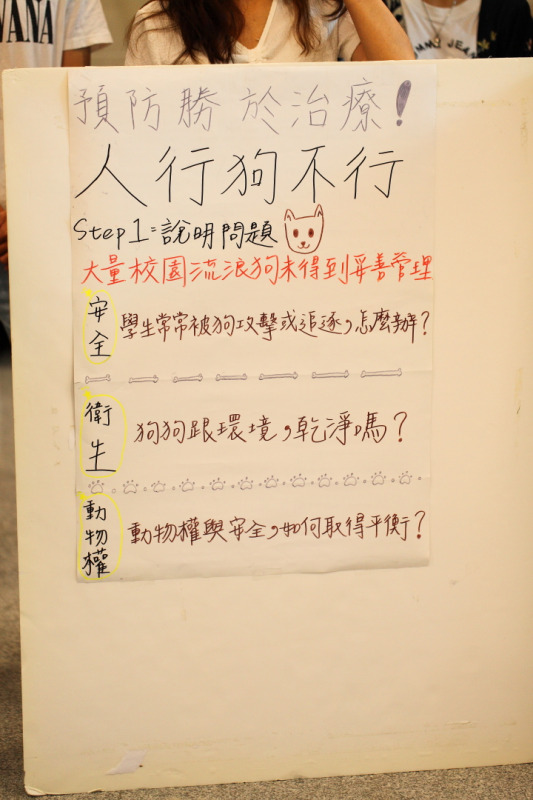 VANA
MMY JEAN
預防勝於治療!
人行狗不行
Step1:說明問題
大量校園流浪狗未得到妥善管理
安全
學生常常被狗攻擊或追逐,怎麼辦?
衛生
狗狗跟環境,乾淨嗎?
動物權
動物權與安全,如何取得平衡?